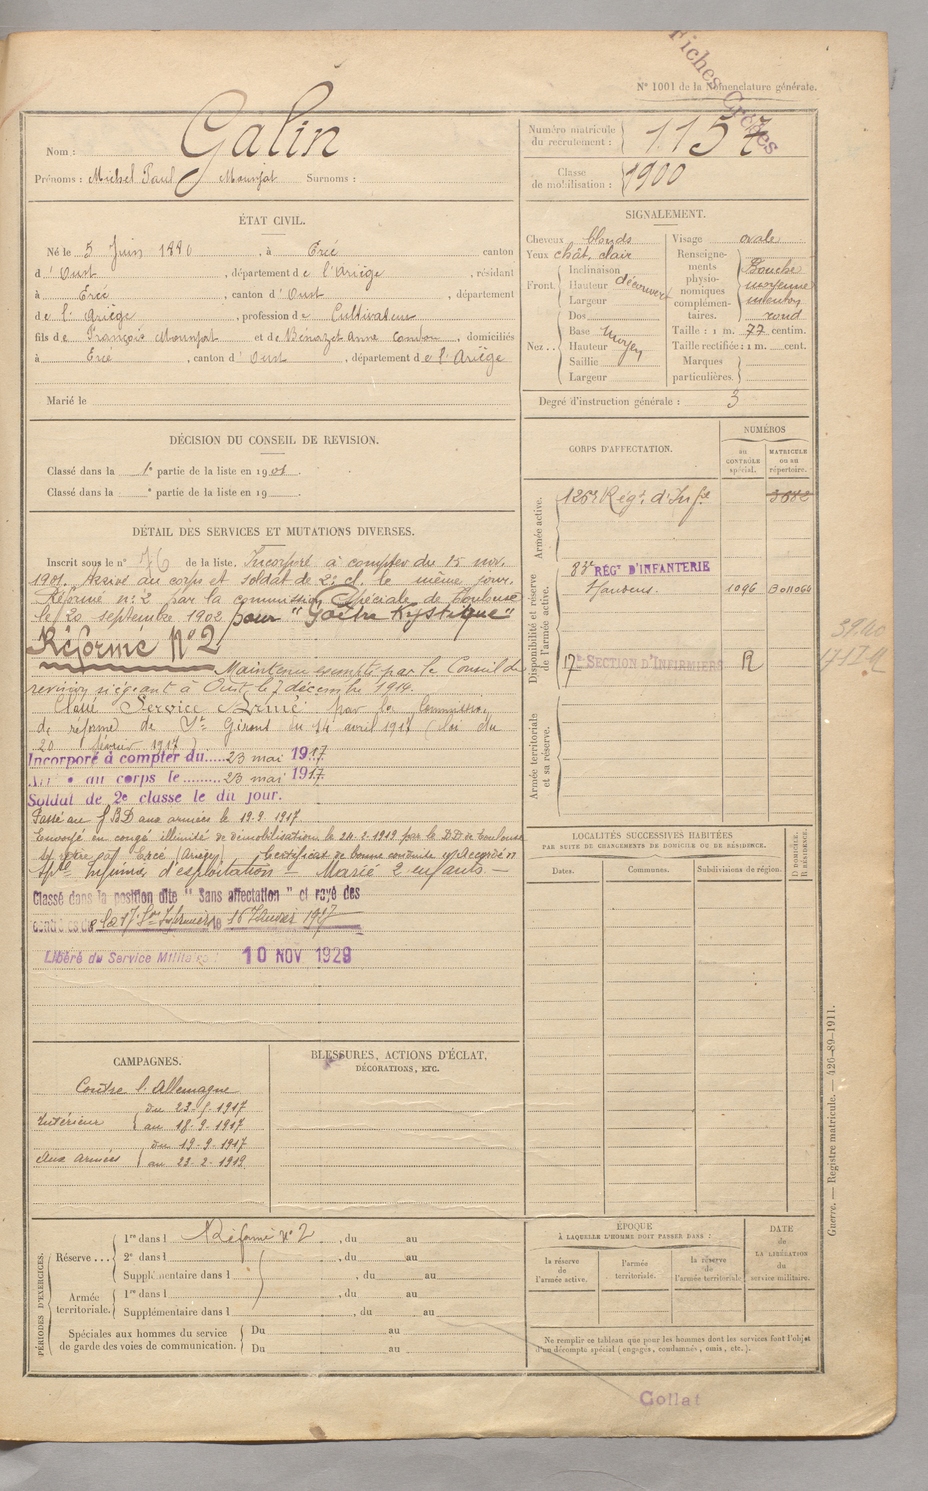 Fiches Crées
N° 1001 de la Nomenclature générale.
Nom : Galin
Prénoms : Michel Paul Mounjat Surnoms :
Numéro matricule du recrutement : 1157
Classe de mobilisation : 1900
ÉTAT CIVIL.
Né le 5 Juin 1880, à Ercé canton
d'Oust, département de l'Ariège, résidant
à Ercé, canton d'Oust, département
de l'Ariège, profession de Cultivateur
fils de François Mounjat et de Bénazet Anne, domiciliés
à Ercé, canton d'Oust, département de l'Ariège
Marié le
SIGNALEMENT.
Cheveux blonds
Yeux chât. clair
Front. Inclinaison
Hauteur découvert
Largeur
Nez.. Dos
Base moyen
Hauteur
Saillie
Largeur
Visage ovale
Renseignements physionomiques complémentaires. Bouche moyenne menton rond
Taille : 1 m. 77 centim.
Taille rectifiée : 1 m. cent.
Marques particulières.
Degré d'instruction générale : 3
DÉCISION DU CONSEIL DE REVISION.
Classé dans la 1e partie de la liste en 1901.
Classé dans la e partie de la liste en 19
DÉTAIL DES SERVICES ET MUTATIONS DIVERSES.
Inscrit sous le n° 76 de la liste. Incorporé à compter du 15 nov.
1901. Arrivé au corps et soldat de 2e cl. le même jour.
Réformé n° 2 par la commission Spéciale de Toulouse
le 20 septembre 1902 pour "Goître Kystique"
Réformé N° 2
Maintenu exempté par le Conseil de
revision siégeant à Oust, le 7 décembre 1914.
Classé Service Armé par la commission
de réforme de St Girons du 14 avril 1917 (loi du
20 février 1917)
Incorporé à compter du 23 mai 1917
Arrivé au corps le 23 mai 1917
Soldat de 2e classe le dit jour.
Passé au G B D aux armées le 19.9.1917
Envoyé en congé illimité de démobilisation le 24.2.1919 par le D.D de Toulouse
se retire à Ercé (Ariège) Certificat de bonne conduite Accordé
infirmier d'exploitation Marié 2 enfants
Classé dans la position dite "Sans affectation" et rayé des
contrôles de la 17 Son Infirmiers le 15 Janvier 1927
Libéré du Service Militaire : 10 NOV 1929
CORPS D'AFFECTATION.
NUMÉROS
au CONTRÔLE spécial.
MATRICULE ou au répertoire.
Armée active.
126e Régt d'Infie 3682
Disponibilité et réserve de l'armée active.
83e RÉGT D'INFANTERIE
1096
17e SECTION D'INFIRMIERS R
Armée territoriale et sa réserve.
LOCALITÉS SUCCESSIVES HABITÉES
PAR SUITE DE CHANGEMENTS DE DOMICILE OU DE RÉSIDENCE.
D DOMICILE. R RÉSIDENCE.
Dates. Communes. Subdivisions de région.
CAMPAGNES.
Contre l'Allemagne
Intérieur du 23-5-1917
au 18-9-1917
Aux Armées du 19-9-1917
au 23-2-1919
BLESSURES, ACTIONS D'ÉCLAT,
DÉCORATIONS, ETC.
PÉRIODES D'EXERCICES.
Réserve ... 1re dans l Réformé N° 2, du au
2e dans l, du au
Supplémentaire dans l, du au
Armée territoriale. 1re dans l, du au
Supplémentaire dans l, du au
Spéciales aux hommes du service de garde des voies de communication. Du au
Du au
ÉPOQUE
À LAQUELLE L'HOMME DOIT PASSER DANS :
la réserve de l'armée active.
l'armée territoriale.
la réserve de l'armée territoriale
DATE DE LA LIBÉRATION du service militaire.
Ne remplir ce tableau que pour les hommes dont les services font l'objet
d'un décompte spécial (engagés, condamnés, omis, etc.).
Guerre. — Registre matricule. — 426-89-1911.
Gollat